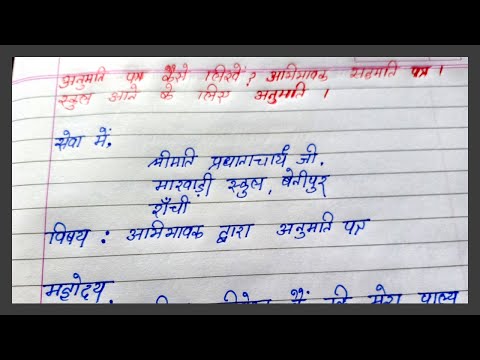 अनुमति पत्र कैसे लिखें? अभिभावक सहमति पत्र।
स्कुल आने के लिए अनुमति।
सेवा में,
श्रीमति प्रधानाचार्य जी,
मारवाड़ी स्कुल, बेतीपुर
राँची
विषय : अभिभावक द्वारा अनुमति पत्र
महोदय,
मेरा पाल्य